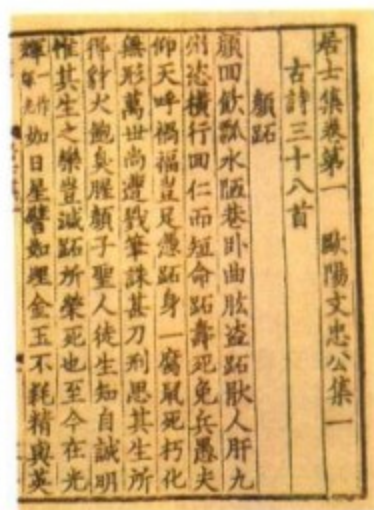 居士集卷第一　歐陽文忠公集一
古詩三十八首
顏跖
顏回飲瓢水陋巷卧曲肱盜跖猒人肝九
州恣橫行回仁而短命跖壽死免兵愚夫
仰天呼禍福豈足憑跖身一腐鼠死朽化
無形萬世尚遭戮筆誅甚刀刑思其生所
得豺犬飽臭腥顏子聖人徒生知自誠明
惟其生之樂豈減跖所榮死也至今在光
輝一作如日星譬如埋金玉不耗精與英